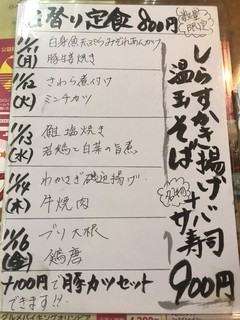 日替り定食 800円
数量限定
11/11(月) 白身魚天ぷらみぞれあんかけ
豚生姜焼き
11/12(火) さわら煮付け
ミンチカツ
11/13(水) 鮭塩焼き
若鶏と白菜の旨煮
11/14(木) わかさぎ磯辺揚げ
牛焼肉
(金) ブリ大根
鶏唐
+100円で豚カツセット
できます!!
しらすかき揚げ
温玉そば
+サバ寿司
900円